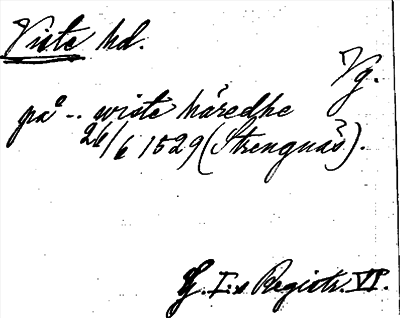 Viste hd.
Vg.
på -. wiste häredhe
26/6 1529 (Strengnäs).
G. I:s Registr. VI.